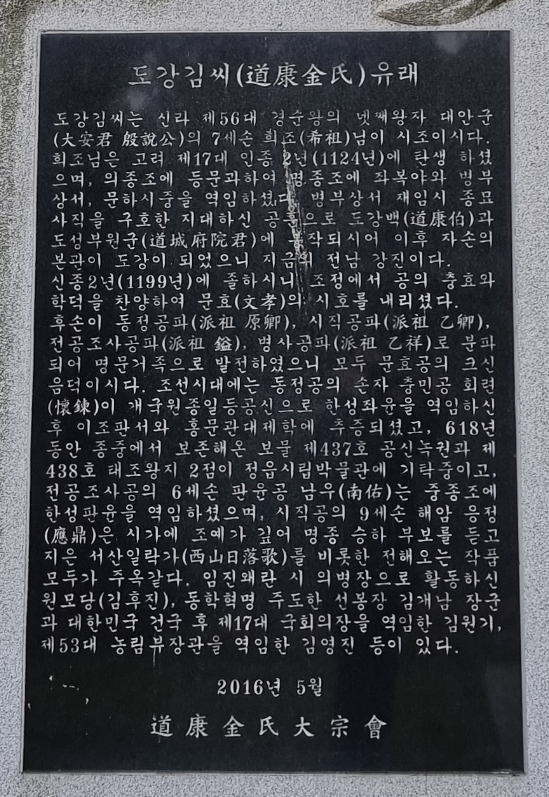 도강김씨(道康金氏)유래
도강김씨는 신라 제56대 경순왕의 넷째왕자 대안군
(大安君 殷說公)의 7세손 희조(希祖)님이 시조이시다.
희조님은 고려 제17대 인종 2년(1124년)에 탄생 하셨
으며, 의종조에 등문과하여 명종조에 좌복야와 병부
상서, 문하시중을 역임하셨다. 병부상서 재임시 종묘
사직을 구호한 지대하신 공훈으로 도강백(道康伯)과
도성부원군(道城府院君)에 봉작되시어 이후 자손의
본관이 도강이 되었으니 지금의 전남 강진이다.
신종2년(1199년)에 졸하시니 조정에서 공의 충효와
학덕을 찬양하여 문효(文孝)의 시호를 내리셨다.
후손이 동정공파(派祖 原卿), 시직공파(派祖 乙卿),
전공조사공파(派祖 鎰), 병사공파(派祖 乙祥)로 분파
되어 명문거족으로 발전하였으니 모두 문효공의 크신
음덕이시다. 조선시대에는 동정공의 손자 충민공 회련
(懷鍊)이 개국원종일등공신으로 한성좌윤을 역임하신
후 이조판서와 홍문관대제학에 추증되셨고, 618년
동안 종중에서 보존해온 보물 제437호 공신녹권과 제
438호 태조왕지 2점이 정읍시립박물관에 기탁중이고,
전공조사공의 6세손 판윤공 남우(南佑)는 중종조에
한성판윤을 역임하셨으며, 시직공의 9세손 해암 응정
(應鼎)은 시가에 조예가 깊어 명종 승하 부보를 듣고
지은 서산일락가(西山日落歌)를 비롯한 전해오는 작품
모두가 주옥같다. 임진왜란 시 의병장으로 활동하신
원모당(김후진), 동학혁명 주도한 선봉장 김개남 장군
과 대한민국 건국 후 제17대 국회의장을 역임한 김원기,
제53대 농림부장관을 역임한 김영진 등이 있다.
2016년 5월
道康金氏大宗會